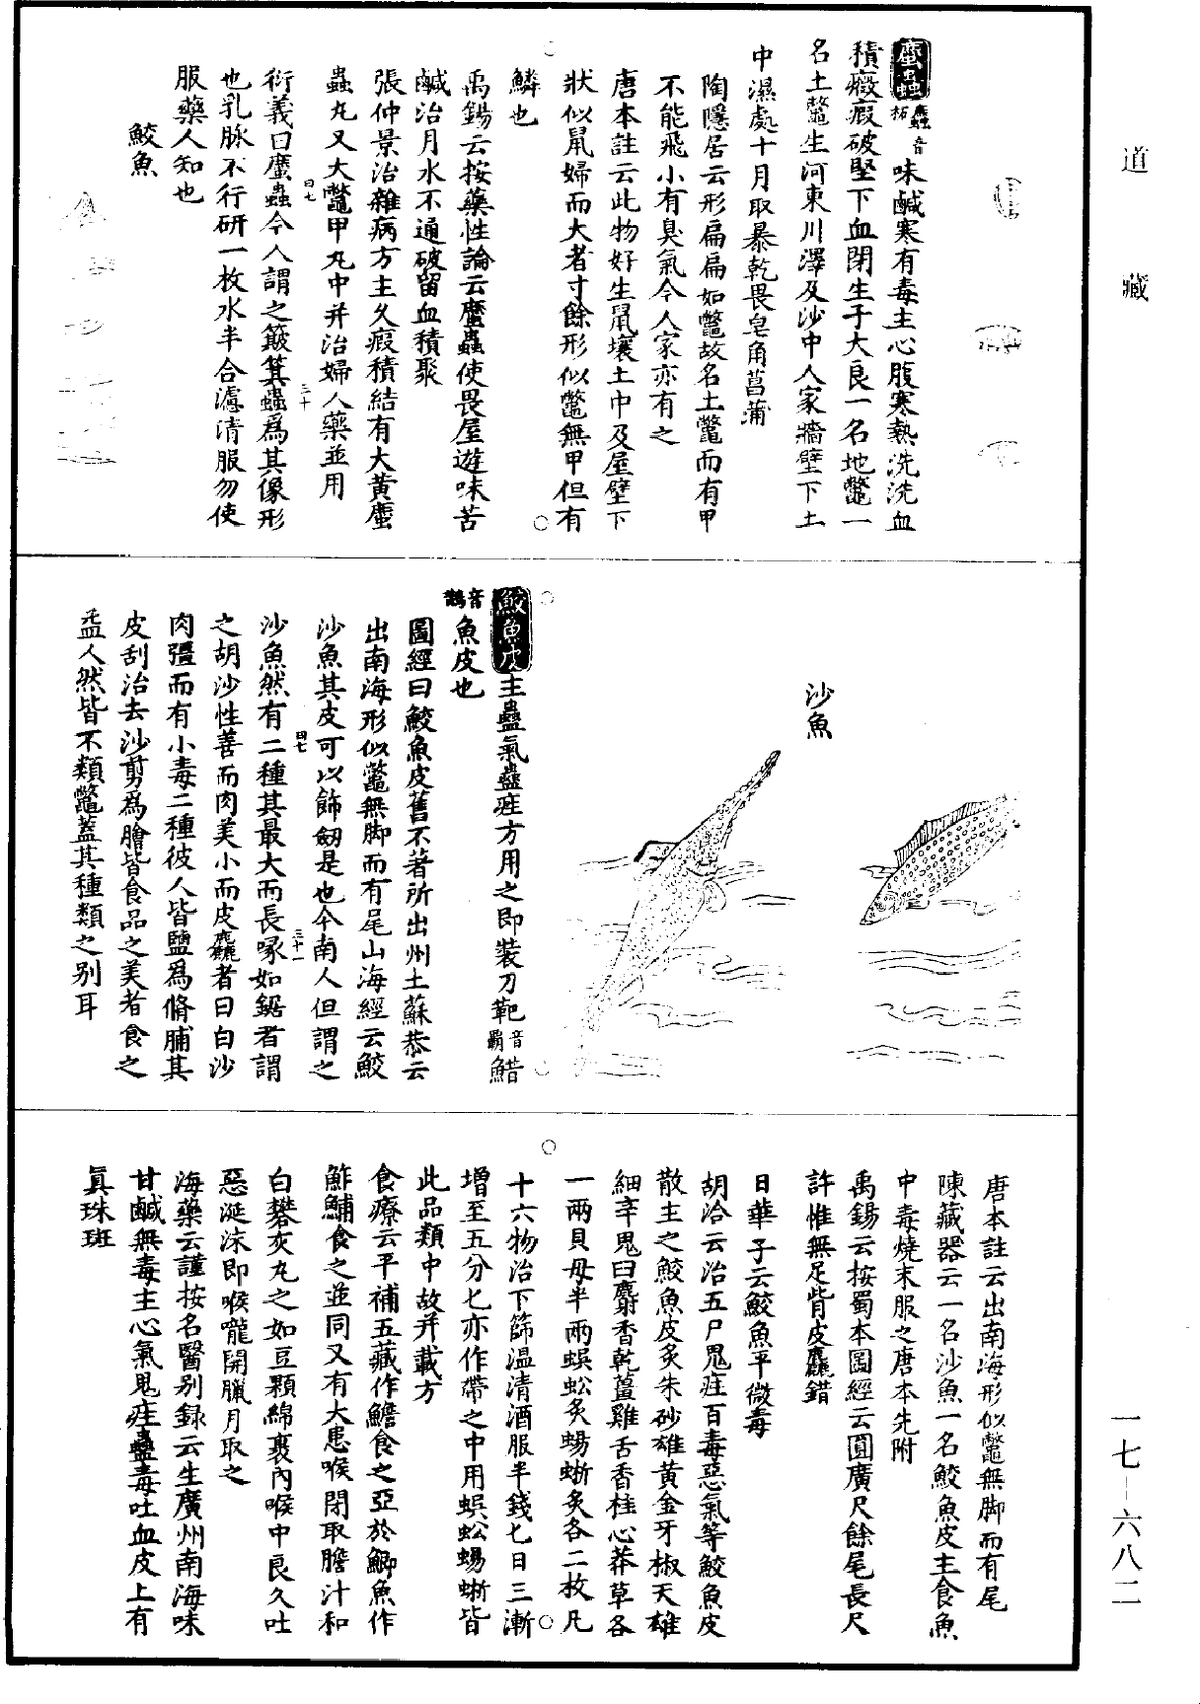 道藏
䗪蟲
音柘
味鹹寒有毒主心腹寒熱洗洗血
積癥瘕破堅下血閉生子大良一名地鼈一
名土鼈生河東川澤及沙中人家牆壁下土
中濕處十月取暴乾畏皂角菖蒲
陶隱居云形扁扁如鼈故名土鼈而有甲
不能飛小有臭氣今人家亦有之
唐本註云此物好生鼠壤土中及屋壁下
狀似鼠婦而大者寸餘形似鼈無甲但有
鱗也
禹錫云按藥性論云䗪蟲使畏屋遊味苦
鹹治月水不通破留血積聚
張仲景治雜病方主久瘕積結有大黃䗪
蟲丸又大鼈甲丸中并治婦人藥並用
四七
三十
衍義曰䗪蟲今人謂之簸箕蟲爲其像形
也乳脉不行研一枚水半合濾清服勿使
服藥人知也
鮫魚
沙魚
鮫魚皮
主蠱氣蠱疰方用之即裝刀靶
音霸
䱜
音鵲
魚皮也
圖經曰鮫魚皮舊不著所出州土蘇恭云
出南海形似鼈無脚而有尾山海經云鮫
沙魚其皮可以飾劒是也今南人但謂之
四七
三十一
沙魚然有二種其最大而長喙如鋸者謂
之胡沙性善而肉美小而皮麤者曰白沙
肉彊而有小毒二種彼人皆鹽爲脩脯其
皮刮治去沙剪爲膾皆食品之美者食之
益人然皆不類鼈蓋其種類之别耳
唐本註云出南海形似鼈無脚而有尾
陳藏器云一名沙魚一名鮫魚皮主食魚
中毒燒末服之唐本先附
禹錫云按蜀本圖經云圓廣尺餘尾長尺
許惟無足背皮麤錯
日華子云鮫魚平微毒
胡洽云治五尸鬼疰百毒惡氣等鮫魚皮
散主之鮫魚皮炙朱砂雄黃金牙椒天雄
細辛鬼臼麝香乾薑雞舌香桂心莽草各
一兩貝母半兩蜈蚣炙蜴蜥炙各二枚凡
十六物治下篩温清酒服半錢七日三漸
增至五分匕亦作帶之中用蜈蚣蜴蜥皆
此品類中故并載方
食療云平補五藏作鱠食之亞於鯽魚作
鮓鯆食之並同又有大患喉閉取膽汁和
白礬灰丸之如豆顆綿裹內喉中良久吐
惡涎沫即喉嚨開臘月取之
海藥云謹按名醫别録云生廣州南海味
甘鹹無毒主心氣鬼疰蠱毒吐血皮上有
眞珠斑
一七—六八二